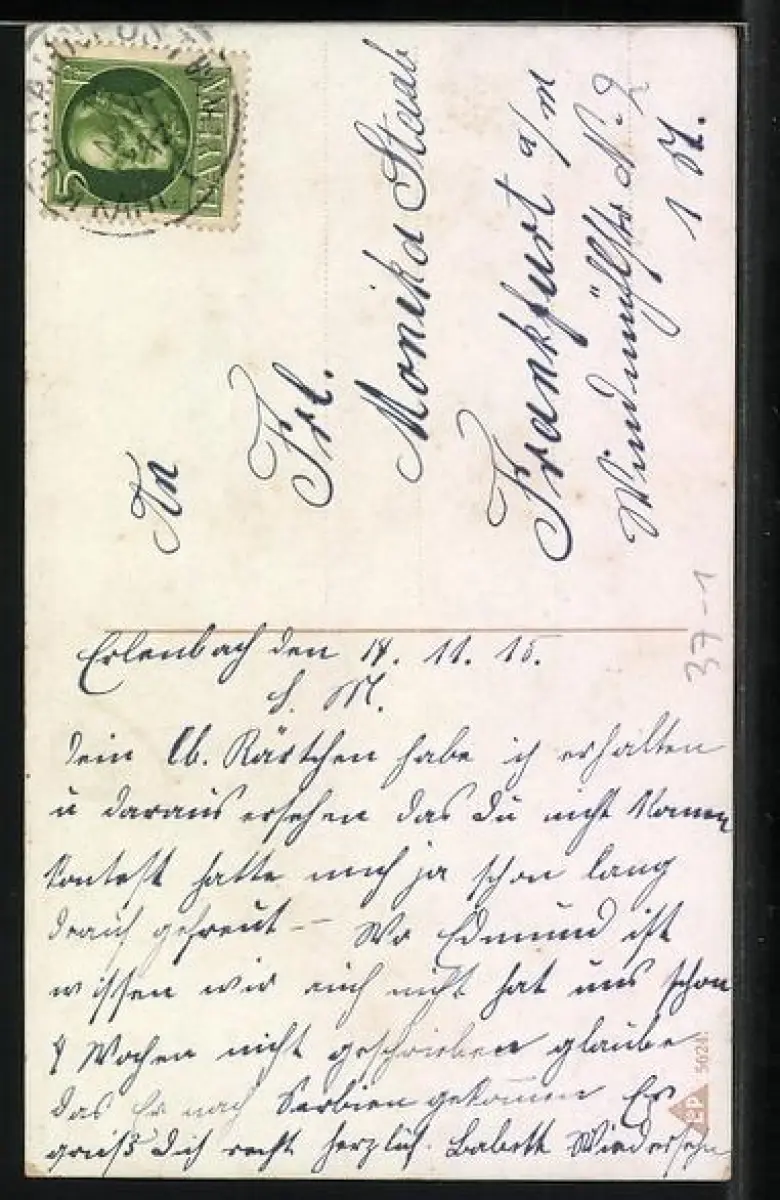 BAYERN
5
KAHL
An
Frl.
Monika Staab
Frankfurt a/m
Windmühlstr N. 2
1 St.
Erlenbach den 14. 11. 15.
L. M.
Dein lb. Kärtchen habe ich erhalten
u daraus ersehen das Du nicht kommen
konntest hatte mich ja schon lang
drauf gefreut – Wo Edmund ist
wissen wir auch nicht hat uns schon
4 Wochen nicht geschrieben glaube
das Er nach Serbien gekommen Es
grüßt Dich recht herzlich Babett Wiedersehn
37-1
5624